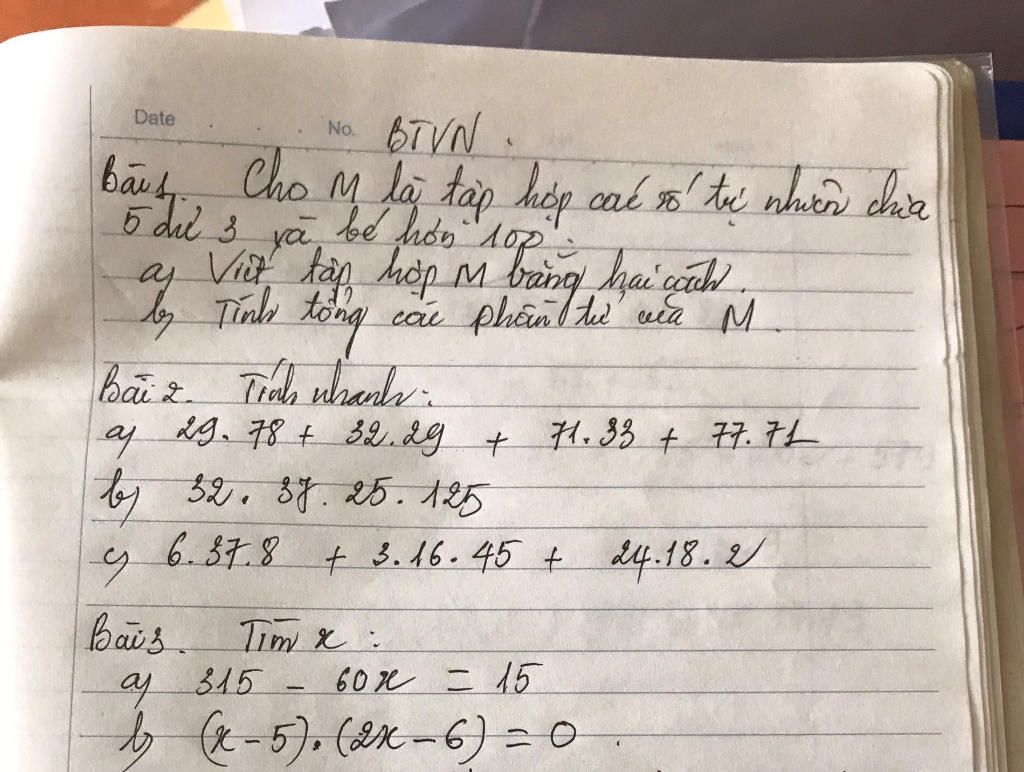 Date No. BTVN.
Bài 1. Cho M là tập hợp các số tự nhiên chia
5 dư 3 và bé hơn 100.
a) Viết tập hợp M bằng hai cách.
b) Tính tổng các phần tử của M.
Bài 2. Tính nhanh:
a) 29.78 + 32.29 + 71.33 + 77.71
b) 32.37.25.125
c) 6.37.8 + 3.16.45 + 24.18.2
Bài 3. Tìm x:
a) 315 - 60x = 15
b) (x-5).(2x-6) = 0.